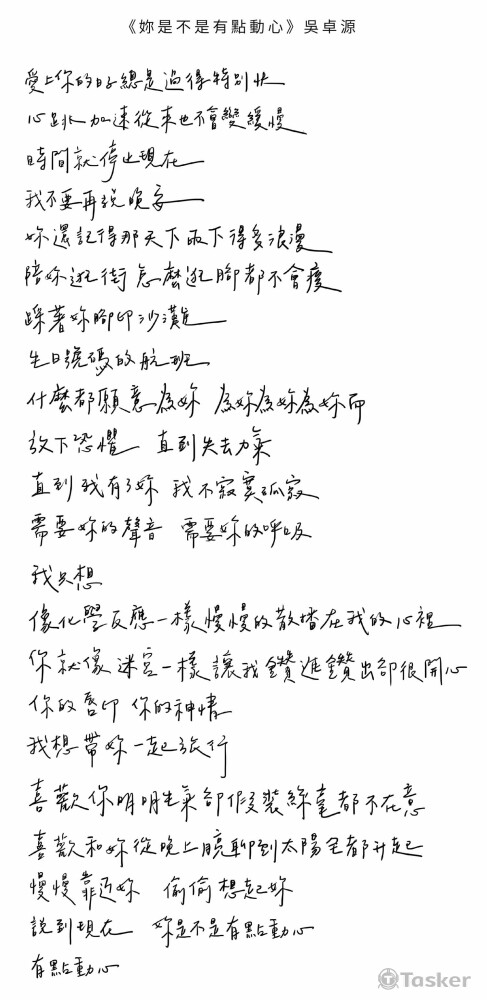 《妳是不是有點動心》吳卓源
愛上你的日子總是過得特別快
心跳加速從來也不會變緩慢
時間就停止現在
我不要再說晚安
妳還記得那天下雨下得多浪漫
陪妳逛街怎麼逛腳都不會痠
踩著妳腳印沙灘
生日號碼的航班
什麼都願意為妳 為妳為妳為妳而
放下恐懼 直到失去力氣
直到我有了妳 我不寂寞孤寂
需要妳的聲音 需要妳的呼吸
我只想
像化學反應一樣慢慢的散播在我的心裡
你就像迷宮一樣讓我鑽進鑽出卻很開心
你的唇印 你的神情
我想帶妳一起旅行
喜歡你明明生氣卻假裝絲毫都不在意
喜歡和妳從晚上聊到太陽都升起
慢慢靠近妳 偷偷想起妳
說到現在 妳是不是有點動心
有點動心
Tasker